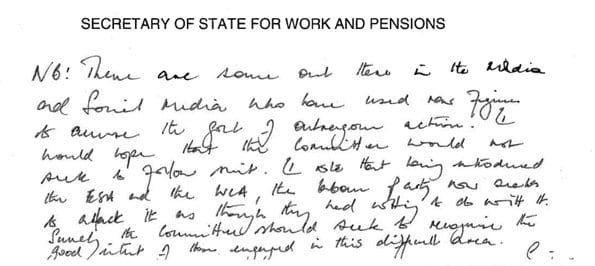 SECRETARY OF STATE FOR WORK AND PENSIONS
NB: There are some out there in the media
and Social Media who have used raw Figures
to accuse the Govt of outrageous action. I
would hope that the Committee would not
seek to follow suit. I note that having introduced
the ESA and the WCA, the Labour Party now seeks
to attack it as though they had nothing to do with it.
Surely the Committee should seek to recognise the
good intent of those engaged in this difficult area.